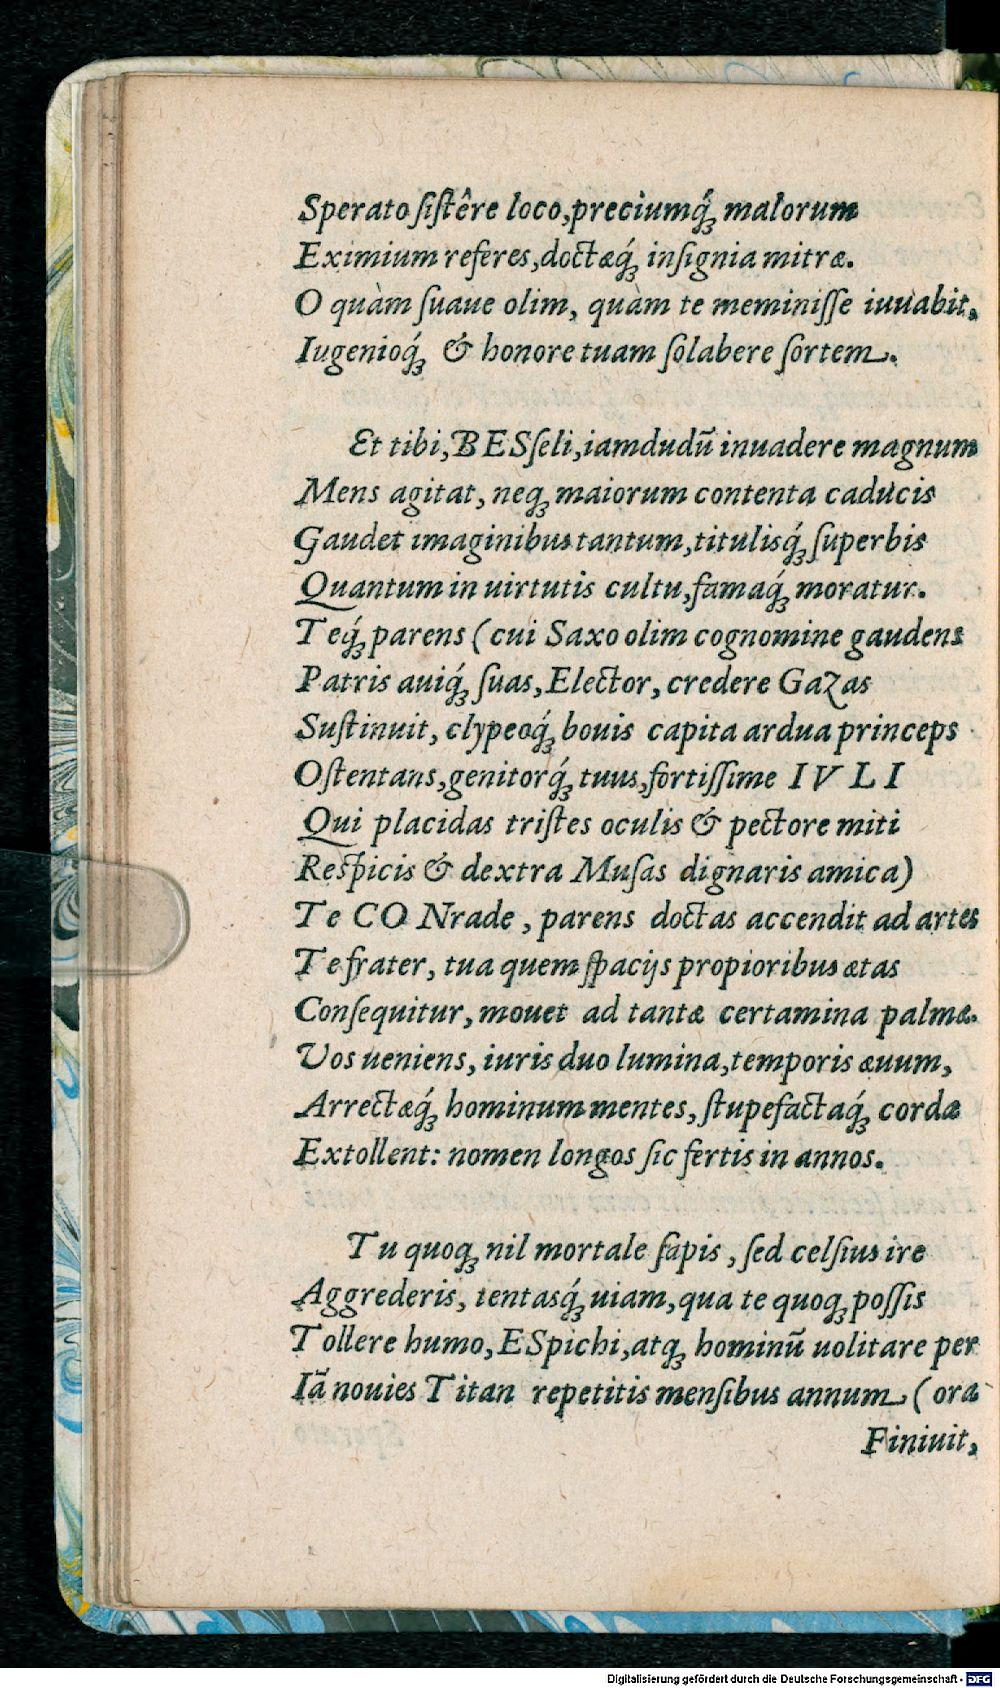 Sperato ſiſtêre loco, preciumq́ꝫ malorum
Eximium referes, doctæq́ꝫ inſignia mitræ.
O quàm ſuaue olim, quàm te meminiſſe iuuabit,
Iugenioq́ꝫ & honore tuam ſolabere ſortem.
Et tibi, BESſeli, iamdudū inuadere magnum
Mens agitat, neqꝫ maiorum contenta caducis
Gaudet imaginibus tantum, titulisq́ꝫ ſuperbis
Quantum in uirtutis cultu, famaq́ꝫ moratur.
Teq́ꝫ parens (cui Saxo olim cognomine gaudens
Patris auiq́ꝫ ſuas, Elector, credere Gazas
Suſtinuit, clypeoq́ꝫ bouis capita ardua princeps
Oſtentans, genitorq́ꝫ tuus, fortiſſime IVLI
Qui placidas triſtes oculis & pectore miti
Reſpicis & dextra Muſas dignaris amica)
Te CONrade, parens doctas accendit ad artes
Te frater, tua quem ſpacijs propioribus ætas
Conſequitur, mouet ad tantæ certamina palmæ.
Vos ueniens, iuris duo lumina, temporis æuum,
Arrectæq́ꝫ hominum mentes, ſtupefactaq́ꝫ corda
Extollent: nomen longos ſic fertis in annos.
Tu quoqꝫ nil mortale ſapis, ſed celſius ire
Aggrederis, tentasq́ꝫ uiam, qua te quoqꝫ poſſis
Tollere humo, ESpichi, atqꝫ hominū uolitare per
Iā nouies Titan repetitis menſibus annum (ora
Finiuit,
Digitalisierung gefördert durch die Deutsche Forschungsgemeinschaft - DFG